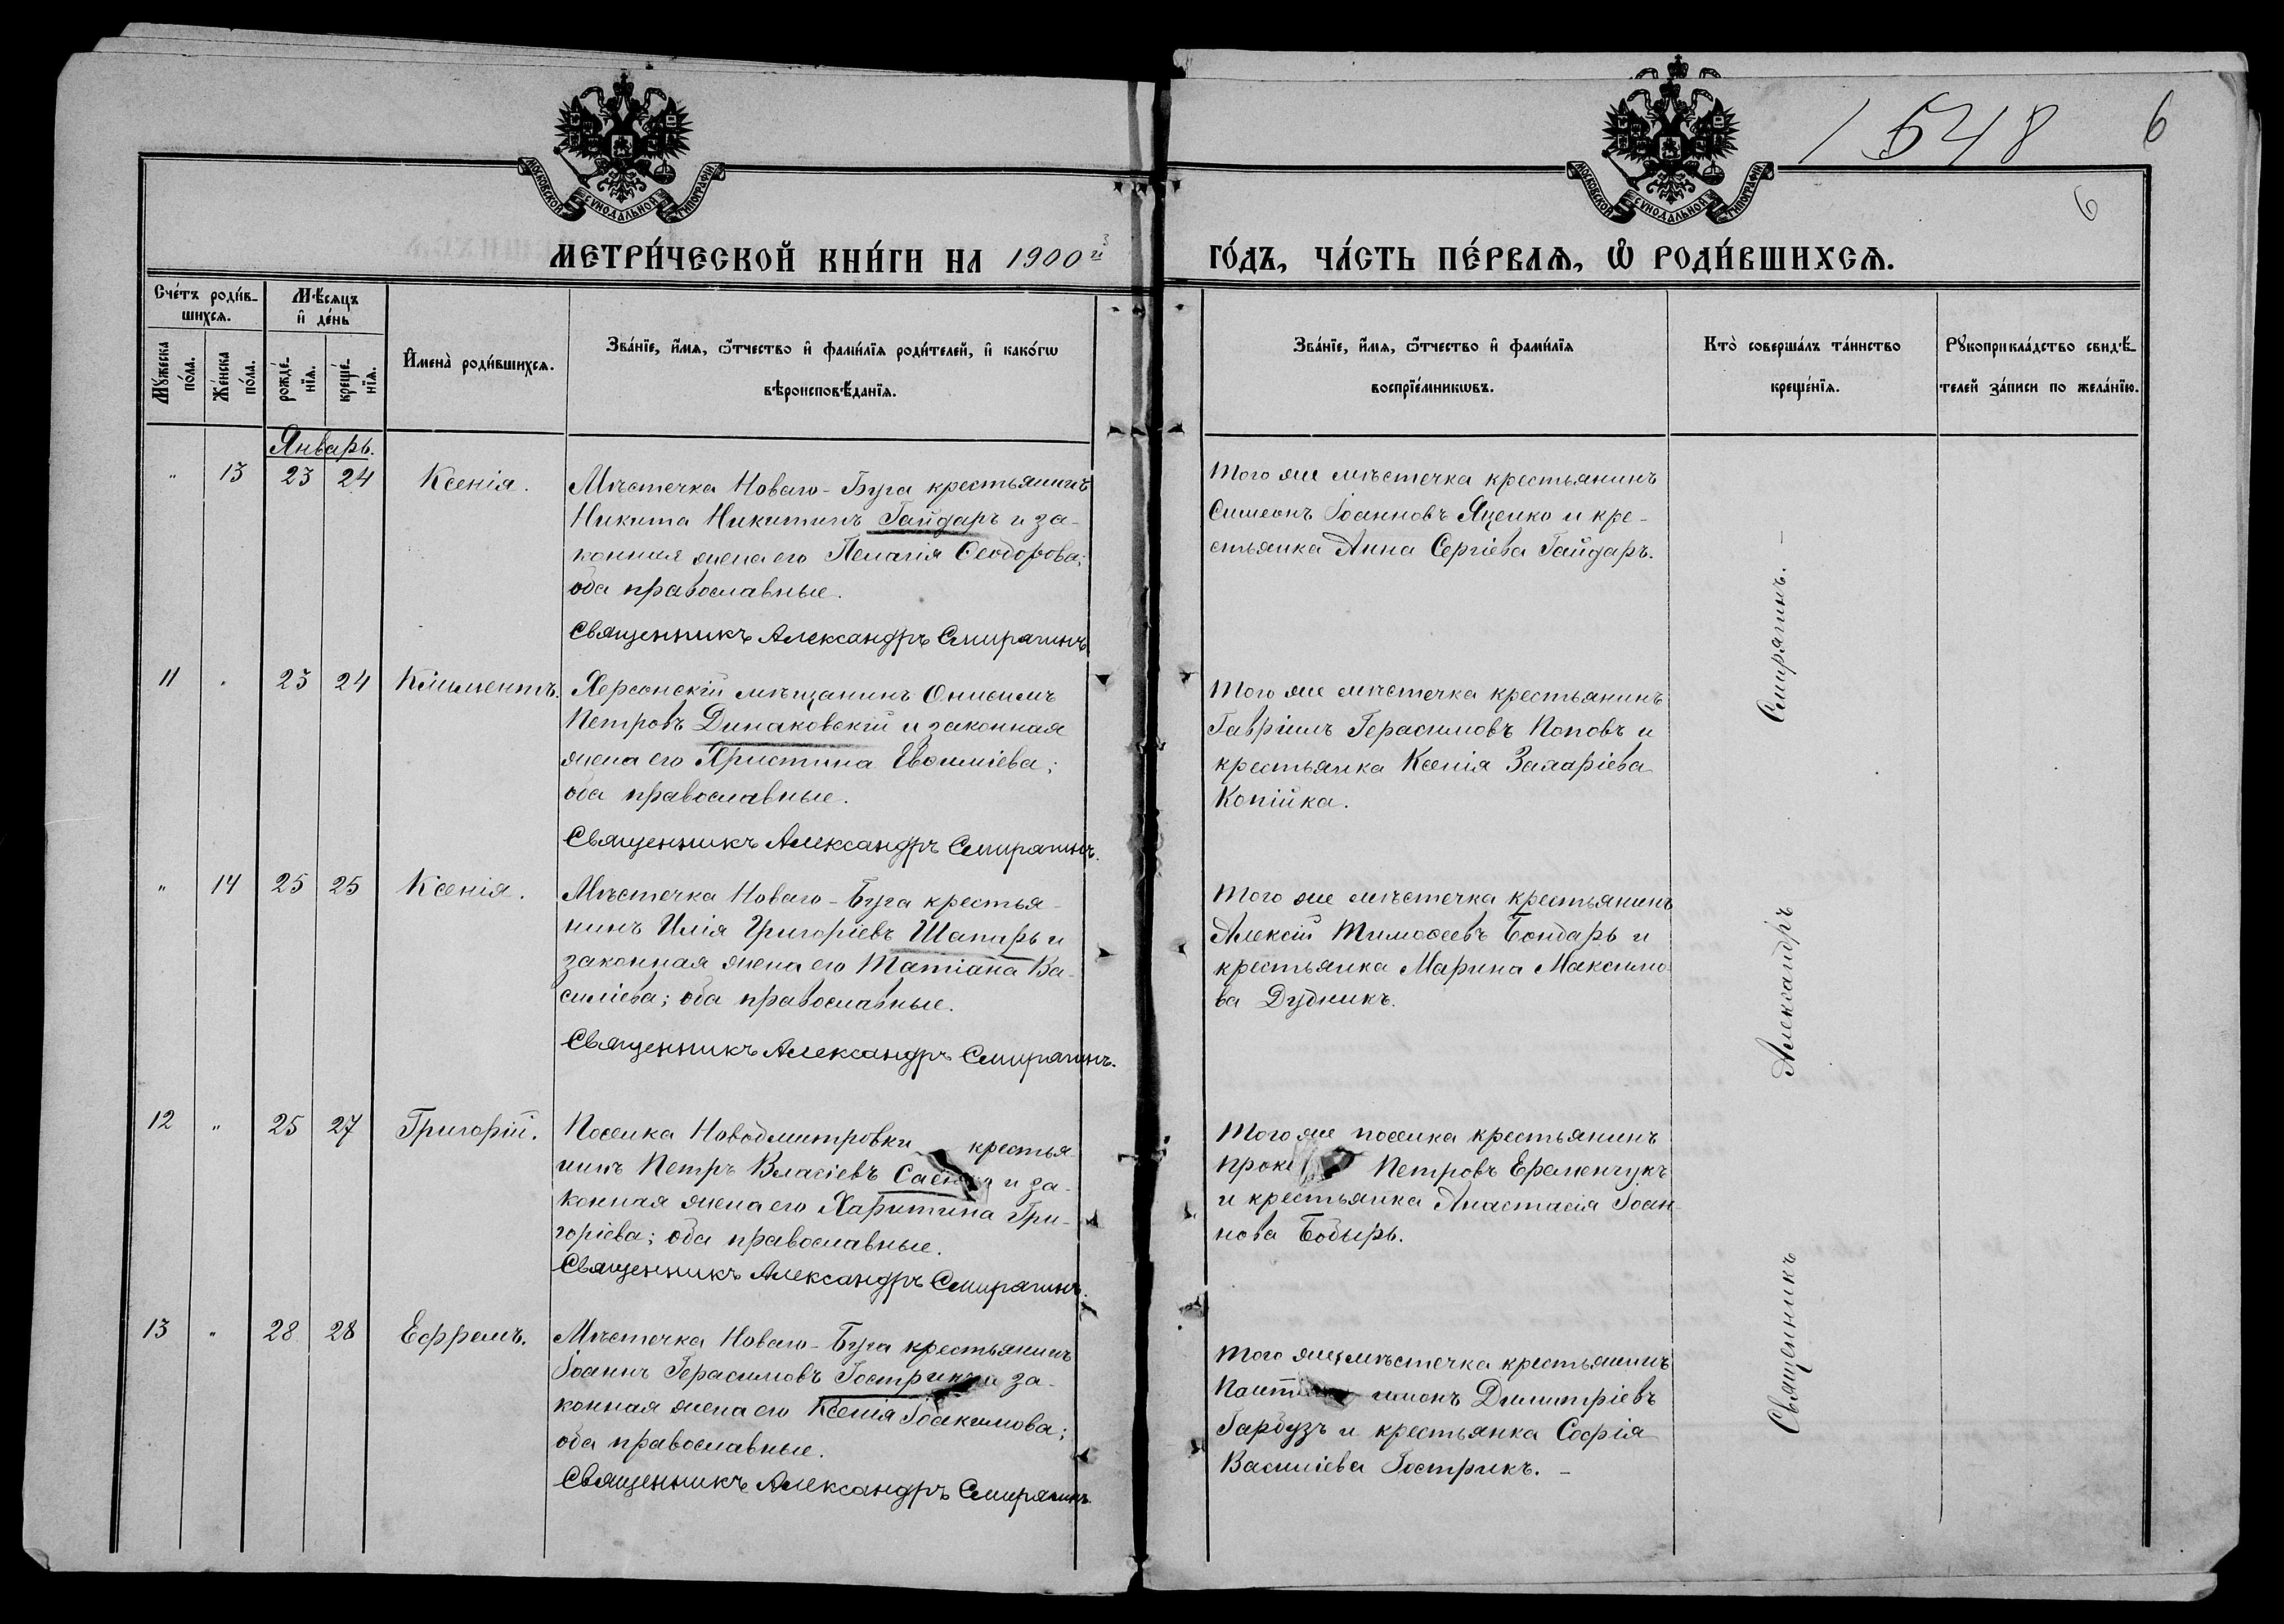 1548
6
6
МОСКОВСКОЙ СѴНОДАЛЬНОЙ ТИПОГРАФІИ
МОСКОВСКОЙ СѴНОДАЛЬНОЙ ТИПОГРАФІИ
МЕТРИ́ЧЕСКОЙ КНИ́ГИ НА 1900й
ГО́ДЪ, ЧА́СТЬ ПЕ́РВАѦ, Ѡ҆ РОДИ́ВШИХСѦ.
Сче́тъ роди́в-
шихсѧ.
Мѣ́сяцъ
и҆ де́нь
Мꙋ́жеска
по́ла.
Же́нска
по́ла.
рожде́-
нїѧ.
креще́-
нїѧ.
И҆мена̀ роди́вшихсѧ.
Зва́нїе, и҆́мѧ, ѻ҆́тчество и҆ фамѝлїѧ роди́телей, и҆ како́гѡ
вѣроисповѣ́данїѧ.
Зва́нїе, и҆́мѧ, ѻ҆́тчество и҆ фамѝлїѧ
воспрїе́мникѡвъ.
Кто̀ соверша́лъ та́инство
креще́нїѧ.
Рꙋкоприкла́дство свидѣ́-
телей за́писи по жела́нїю.
Январь.
" 13 23 24 Ксенія.
Мѣстечка Новаго-Буга крестьянинъ
Никита Никитинъ Гайдаръ и за-
конная жена его Пелагія Ѳеодорова;
оба православные.
Священникъ Александръ Смирягинъ
Того же мѣстечка крестьянинъ
Симеонъ Іоанновъ Яценко и кре-
стьянка Анна Сергіева Гайдаръ.
11 " 23 24 Климентъ.
Херсонскій мѣщанинъ Онисимъ
Петровъ Динаковскій и законная
жена его Христина Евѳиміева;
оба православные.
Священникъ Александръ Смирягинъ.
Того же мѣстечка крестьянинъ
Гавріилъ Герасимовъ Поповъ и
крестьянка Ксенія Захаріева
Копійка.
" 14 25 25 Ксенія.
Мѣстечка Новаго-Буга крестья-
нинъ Илія Григоріевъ Шапиръ и
законная жена его Татіана Ва-
силіева; оба православные.
Священникъ Александръ Смирягинъ.
Того же мѣстечка крестьянинъ
Алексій Тимоѳеевъ Бондарь и
крестьянка Марина Максимо-
ва Дудникъ.
12 " 25 27 Григорій.
Поселка Новодмитровки крестья-
нинъ Петръ Власіевъ и за-
конная жена его Харитина Гри-
горіева; оба православные.
Священникъ Александръ Смирягинъ.
Того же поселка крестьянинъ
Петровъ Еременчукъ
и крестьянка Анастасія Іоан-
нова Бобырь.
13 " 28 28 Ефремъ.
Мѣстечка Новаго-Буга крестьянинъ
Іоаннъ Герасимовъ Гострикъ и за-
конная жена его Ксенія Іоакимова;
оба православные.
Священникъ Александръ Смирягинъ.
Того же мѣстечка крестьянинъ
Димитріевъ
Гарбузъ и крестьянка Софія
Василіева Гострикъ. -
Священникъ Александръ Смирягинъ. -